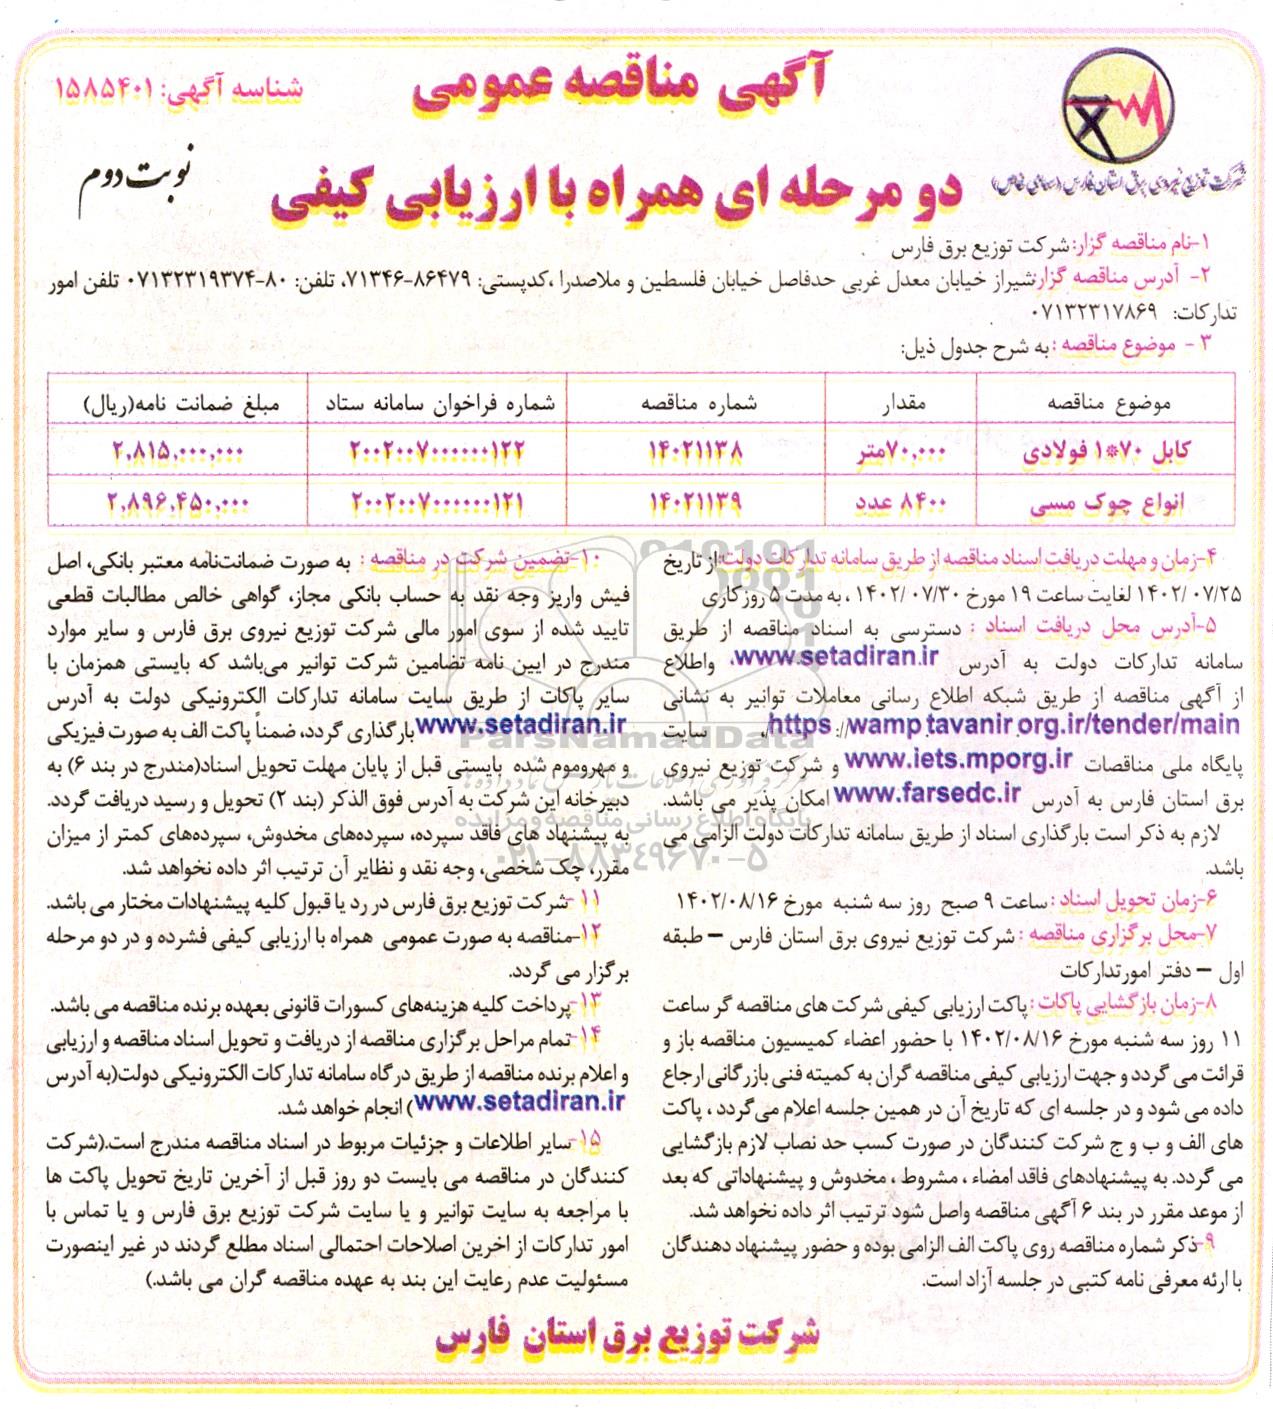 شناسه آگهی: ۱۵۸۵۴۰۱
آگهی مناقصه عمومی
نوبت دوم
دو مرحله ای همراه با ارزیابی کیفی
شرکت توزیع نیروی برق استان فارس (سهامی خاص)
۱-نام مناقصه گزار: شرکت توزیع برق فارس .
۲- آدرس مناقصه گزار: شیراز خیابان معدل غربی حدفاصل خیابان فلسطین و ملاصدرا ،کدپستی: ۸۶۴۷۹-۷۱۳۴۶، تلفن: ۸۰-۰۷۱۳۲۳۱۹۳۷۴ تلفن امور
تدارکات: ۰۷۱۳۲۳۱۷۸۶۹
۳ - موضوع مناقصه : به شرح جدول ذیل:
موضوع مناقصه | مقدار | شماره مناقصه | شماره فراخوان سامانه ستاد | مبلغ ضمانت نامه(ریال)
کابل ۷۰*۱ فولادی | ۷۰,۰۰۰متر | ۱۴۰۲۱۱۳۸ | ۲۰۰۲۰۰۷۰۰۰۰۰۰۱۲۲ | ۲,۸۱۵,۰۰۰,۰۰۰
انواع چوک مسی | ۸۴۰۰ عدد | ۱۴۰۲۱۱۳۹ | ۲۰۰۲۰۰۷۰۰۰۰۰۰۱۲۱ | ۲,۸۹۶,۴۵۰,۰۰۰
۴-زمان و مهلت دریافت اسناد مناقصه از طریق سامانه تدارکات دولت: از تاریخ
۱۴۰۲/ ۰۷/۲۵ لغایت ساعت ۱۹ مورخ ۱۴۰۲/ ۰۷/۳۰ ، به مدت ۵ روز کاری
۵-آدرس محل دریافت اسناد : دسترسی به اسناد مناقصه از طریق
سامانه تدارکات دولت به آدرس www.setadiran.ir، واطلاع
از آگهی مناقصه از طریق شبکه اطلاع رسانی معاملات توانیر به نشانی
https://wamp.tavanir.org.ir/tender/main، سایت
پایگاه ملی مناقصات www.iets.mporg.ir و شرکت توزیع نیروی
برق استان فارس به آدرس www.farsedc.ir امکان پذیر می باشد.
لازم به ذکر است بارگذاری اسناد از طریق سامانه تدارکات دولت الزامی می
باشد.
۶-زمان تحویل اسناد : ساعت ۹ صبح روز سه شنبه مورخ ۱۴۰۲/۰۸/۱۶
۷-محل برگزاری مناقصه : شرکت توزیع نیروی برق استان فارس – طبقه
اول – دفتر امورتدارکات
۸-زمان بازگشایی پاکات : پاکت ارزیابی کیفی شرکت های مناقصه گر ساعت
۱۱ روز سه شنبه مورخ ۱۴۰۲/۰۸/۱۶ با حضور اعضاء کمیسیون مناقصه باز و
قرائت می گردد و جهت ارزیابی کیفی مناقصه گران به کمیته فنی بازرگانی ارجاع
داده می شود و در جلسه ای که تاریخ آن در همین جلسه اعلام می‌گردد ، پاکت
های الف و ب و ج شرکت کنندگان در صورت کسب حد نصاب لازم بازگشایی
می گردد. به پیشنهادهای فاقد امضاء ، مشروط ، مخدوش و پیشنهاداتی که بعد
از موعد مقرر در بند ۶ آگهی مناقصه واصل شود ترتیب اثر داده نخواهد شد.
۹-ذکر شماره مناقصه روی پاکت الف الزامی بوده و حضور پیشنهاد دهندگان
با ارئه معرفی نامه کتبی در جلسه آزاد است.
۱۰-تضمین شرکت در مناقصه : به صورت ضمانت‌نامه معتبر بانکی، اصل
فیش واریز وجه نقد به حساب بانکی مجاز، گواهی خالص مطالبات قطعی
تایید شده از سوی امور مالی شرکت توزیع نیروی برق فارس و سایر موارد
مندرج در ایین نامه تضامین شرکت توانیر می‌باشد که بایستی همزمان با
سایر پاکات از طریق سایت سامانه تدارکات الکترونیکی دولت به آدرس
www.setadiran.ir بارگذاری گردد، ضمناً پاکت الف به صورت فیزیکی
و مهروموم شده بایستی قبل از پایان مهلت تحویل اسناد(مندرج در بند ۶) به
دبیرخانه این شرکت به آدرس فوق الذکر (بند ۲) تحویل و رسید دریافت گردد.
به پیشنهاد های فاقد سپرده، سپرده‌های مخدوش، سپرده‌های کمتر از میزان
مقرر، چک شخصی، وجه نقد و نظایر آن ترتیب اثر داده نخواهد شد.
۱۱ -شرکت توزیع برق فارس در رد یا قبول کلیه پیشنهادات مختار می باشد.
۱۲-مناقصه به صورت عمومی همراه با ارزیابی کیفی فشرده و در دو مرحله
برگزار می گردد.
۱۳-پرداخت کلیه هزینه‌های کسورات قانونی بعهده برنده مناقصه می باشد.
۱۴-تمام مراحل برگزاری مناقصه از دریافت و تحویل اسناد مناقصه و ارزیابی
و اعلام برنده مناقصه از طریق درگاه سامانه تدارکات الکترونیکی دولت(به آدرس
www.setadiran.ir) انجام خواهد شد.
۱۵-سایر اطلاعات و جزئیات مربوط در اسناد مناقصه مندرج است.(شرکت
کنندگان در مناقصه می بایست دو روز قبل از آخرین تاریخ تحویل پاکت ها
با مراجعه به سایت توانیر و یا سایت شرکت توزیع برق فارس و یا تماس با
امور تدارکات از اخرین اصلاحات احتمالی اسناد مطلع گردند در غیر اینصورت
مسئولیت عدم رعایت این بند به عهده مناقصه گران می باشد.)
شرکت توزیع برق استان فارس
ParsNamadData
پایگاه اطلاع رسانی مناقصه و مزایده
۰۲۱-۸۸۳۴۹۶۷۰-۵